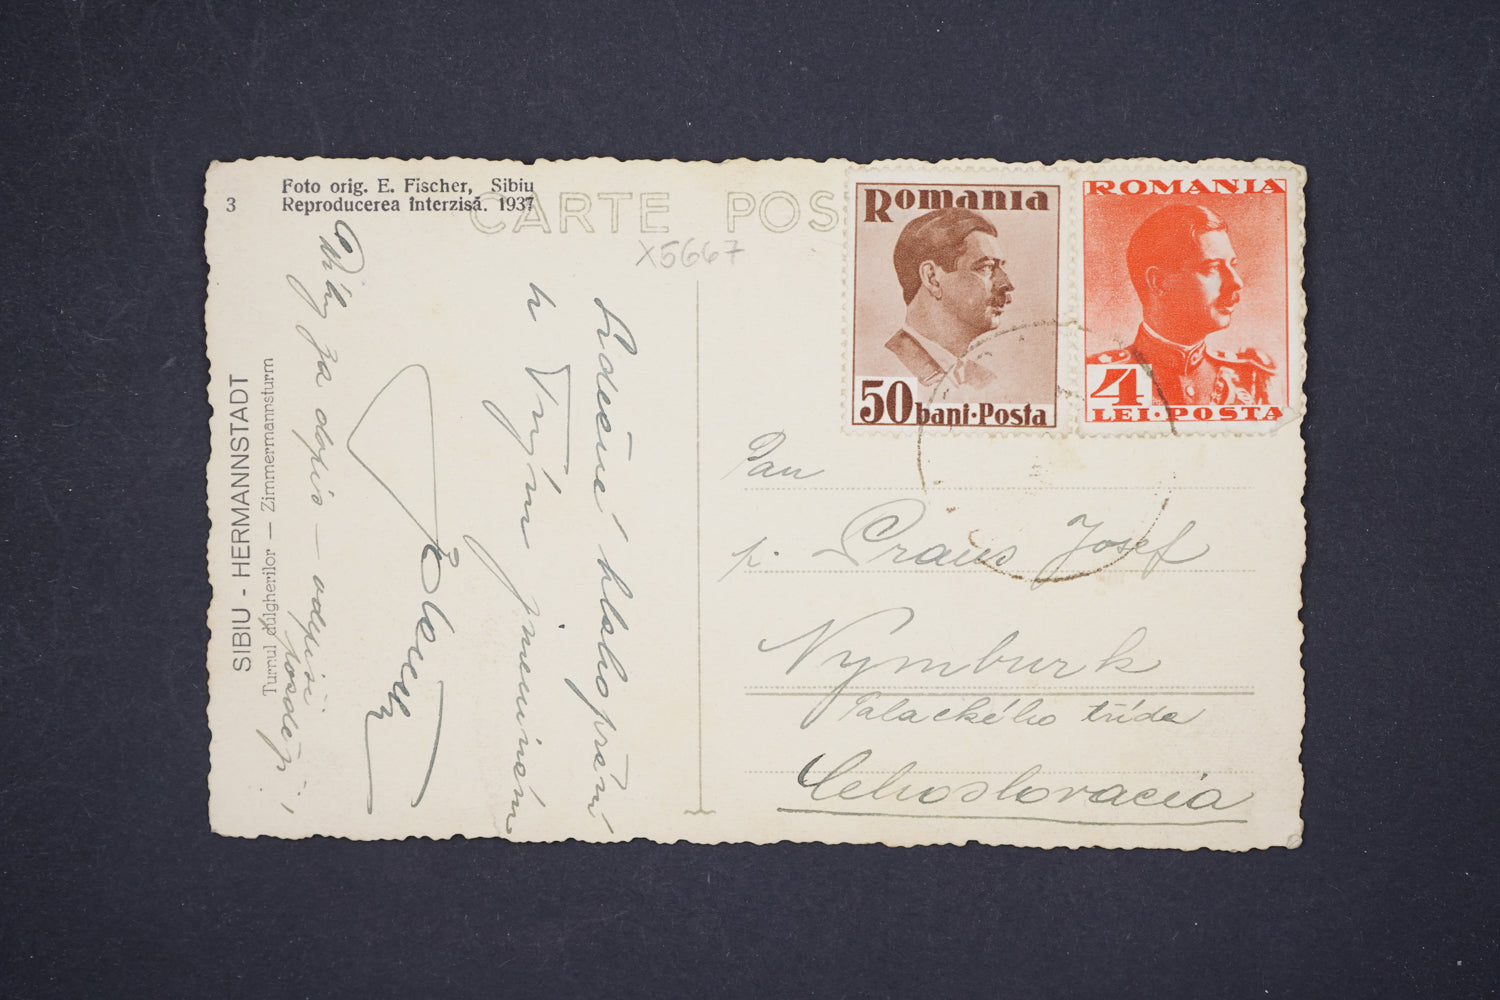 3
Foto orig. E. Fischer, Sibiu
Reproducerea interzisă. 1937
CARTE POS
X5667
SIBIU - HERMANNSTADT
Turnul dulgherilor — Zimmermannsturm
Srdečné blahopřání
k Vaším jmeninám
Díky za dopis — odepíši
později,
Romania
50 bani·Posta
ROMANIA
4
LEI·POSTA
Pan
p. Praus Josef
Nymburk
Palackého třída
Cehoslovacia